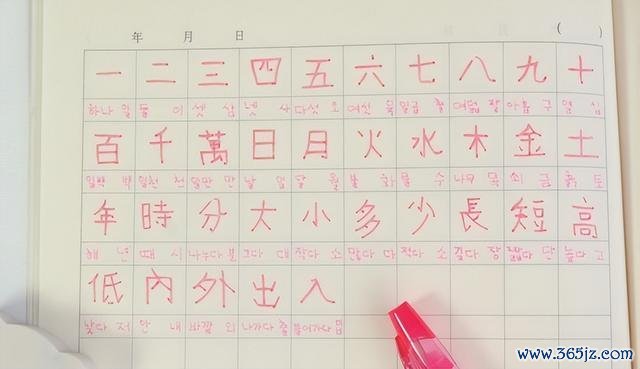 年 月 日 ( )
一 二 三 四 五 六 七 八 九 十
하나 일 둘 이 셋 삼 넷 사 다섯 오 여섯 육 일곱 칠 여덟 팔 아홉 구 열 십
百 千 萬 日 月 火 水 木 金 土
일백 백 일천 천 일만 만 날 일 달 월 불 화 물 수 나무 목 쇠 금 흙 토
年 時 分 大 小 多 少 長 短 高
해 년 때 시 나누다 분 크다 대 작다 소 많다 다 적다 소 길다 장 짧다 단 높다 고
低 內 外 出 入
낮다 저 안 내 바깥 외 나가다 출 들어가다 입
www.365jz.com